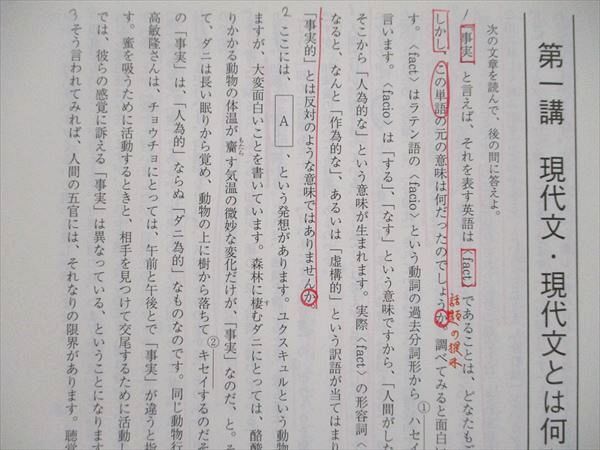 第一講　現代文・現代文とは何
次の文章を読んで、後の問に答えよ。
1「事実」と言えば、それを表す英語は〈fact〉であることは、どなたもご
しかし、この単語の元の意味は何だったのでしょうか。調べてみると面白い
話題の提示
す。〈fact〉はラテン語の〈facio〉という動詞の過去分詞形から①ハセイ
言います。〈facio〉は「する」、「なす」という意味ですから、「人間がした
そこから「人為的な」という意味が生まれます。実際〈fact〉の形容詞〈
なると、なんと「作為的な」、あるいは「虚構的」という訳語が当てはまり
「事実的」とは反対のような意味ではありませんか。
2ここには、　A　、という発想があります。ユクスキュルという動物
ますが、大変面白いことを書いています。森林に棲むダニにとっては、酪酸
りかかる動物の体温が齎す気温の微妙な変化だけが、「事実」なのだ、と。そ
て、ダニは長い眠りから覚め、動物の上に樹から落ちて②キセイするのだそ
の「事実」は、「人為的」ならぬ「ダニ為的」なものなのです。同じ動物行
高敏隆さんは、チョウチョにとっては、午前と午後とで「事実」が違うと指
す。蜜を吸うために活動するときと、相手を見つけて交尾するために活動し
では、彼らの感覚に訴える「事実」は異なっている、ということになります
3そう言われてみれば、人間の五官には、それなりの限界があります。聴覚